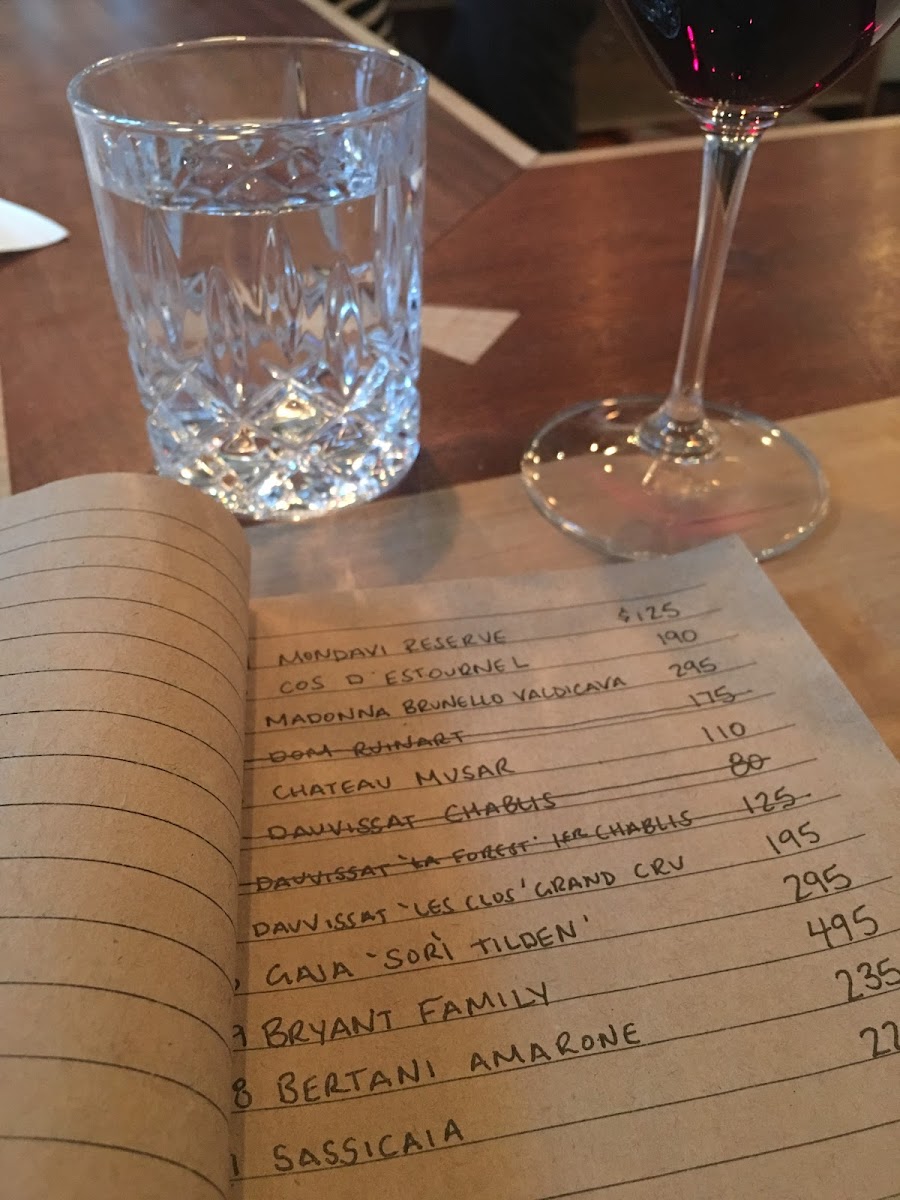 MONDAVI RESERVE $125
COS D'ESTOURNEL 190
MADONNA BRUNELLO VALDICAVA 295
DOM RUINART 175
CHATEAU MUSAR 110
DAUVISSAT CHABLIS 80
DAUVISSAT 'LA FOREST' 1ER CHABLIS 125
DAVVISSAT 'LES CLOS' GRAND CRU 195
GAJA 'SORÌ TILDEN' 295
BRYANT FAMILY 495
8 BERTANI AMARONE 235
SASSICAIA